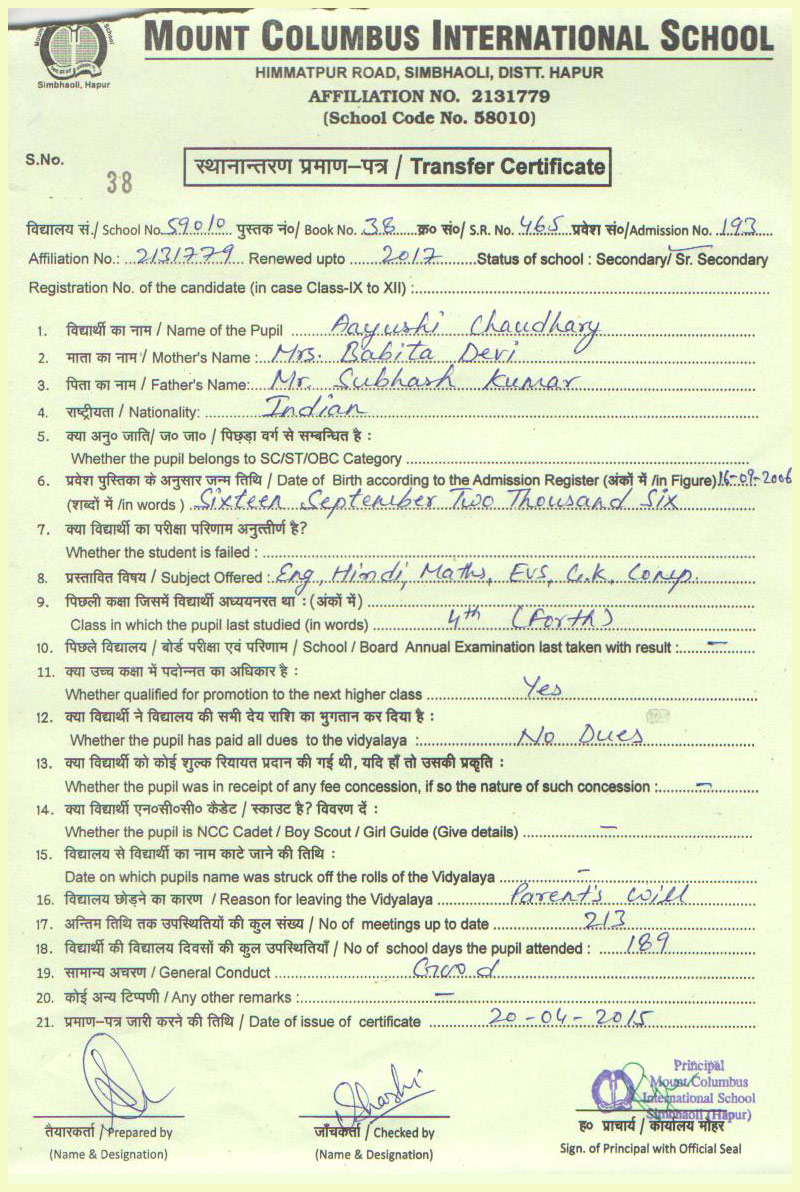 Mount Columbus International School
Simbhaoli, Hapur
HIMMATPUR ROAD, SIMBHAOLI, DISTT. HAPUR
AFFILIATION NO. 2131779
(School Code No. 58010)
S.No. 38
स्थानान्तरण प्रमाण–पत्र / Transfer Certificate
विद्यालय सं./ School No. 59010 पुस्तक नं०/ Book No. 38 क्र० सं०/ S.R. No. 465 प्रवेश सं०/Admission No. 193
Affiliation No.: 2131779 Renewed upto 2017 Status of school : Secondary/ Sr. Secondary
Registration No. of the candidate (in case Class-IX to XII) :
1. विद्यार्थी का नाम / Name of the Pupil Aayushi Chaudhary
2. माता का नाम / Mother's Name : Mrs. Babita Devi
3. पिता का नाम / Father's Name: Mr. Subhash Kumar
4. राष्ट्रीयता / Nationality: Indian
5. क्या अनु० जाति/ ज० जा० / पिछड़ा वर्ग से सम्बन्धित है :
Whether the pupil belongs to SC/ST/OBC Category
6. प्रवेश पुस्तिका के अनुसार जन्म तिथि / Date of Birth according to the Admission Register (अंकों में /in Figure) 16-09-2006
(शब्दों में /in words ) Sixteen September Two Thousand Six
7. क्या विद्यार्थी का परीक्षा परिणाम अनुत्तीर्ण है?
Whether the student is failed :
8. प्रस्तावित विषय / Subject Offered : Eng, Hindi, Maths, EVS, G.K, Comp.
9. पिछली कक्षा जिसमें विद्यार्थी अध्ययनरत था : (अंकों में)
Class in which the pupil last studied (in words) 4th (Forth)
10. पिछले विद्यालय / बोर्ड परीक्षा एवं परिणाम / School / Board Annual Examination last taken with result : —
11. क्या उच्च कक्षा में पदोन्नत का अधिकार है :
Whether qualified for promotion to the next higher class Yes
12. क्या विद्यार्थी ने विद्यालय की सभी देय राशि का भुगतान कर दिया है :
Whether the pupil has paid all dues to the vidyalaya : No Dues
13. क्या विद्यार्थी को कोई शुल्क रियायत प्रदान की गई थी, यदि हाँ तो उसकी प्रकृति :
Whether the pupil was in receipt of any fee concession, if so the nature of such concession : —
14. क्या विद्यार्थी एन०सी०सी० कैडेट / स्काउट है? विवरण दें :
Whether the pupil is NCC Cadet / Boy Scout / Girl Guide (Give details) —
15. विद्यालय से विद्यार्थी का नाम काटे जाने की तिथि :
Date on which pupils name was struck off the rolls of the Vidyalaya —
16. विद्यालय छोड़ने का कारण / Reason for leaving the Vidyalaya Parent's will
17. अन्तिम तिथि तक उपस्थितियों की कुल संख्य / No of meetings up to date 213
18. विद्यार्थी की विद्यालय दिवसों की कुल उपस्थितियाँ / No of school days the pupil attended : 189
19. सामान्य अचरण / General Conduct Good
20. कोई अन्य टिप्पणी / Any other remarks : —
21. प्रमाण–पत्र जारी करने की तिथि / Date of issue of certificate 20-04-2015
Shashi
Principal
Mount Columbus
International School
Simbhaoli (Hapur)
तैयारकर्ता / Prepared by
(Name & Designation)
जाँचकर्ता / Checked by
(Name & Designation)
ह० प्राचार्य / कार्यालय मोहर
Sign. of Principal with Official Seal